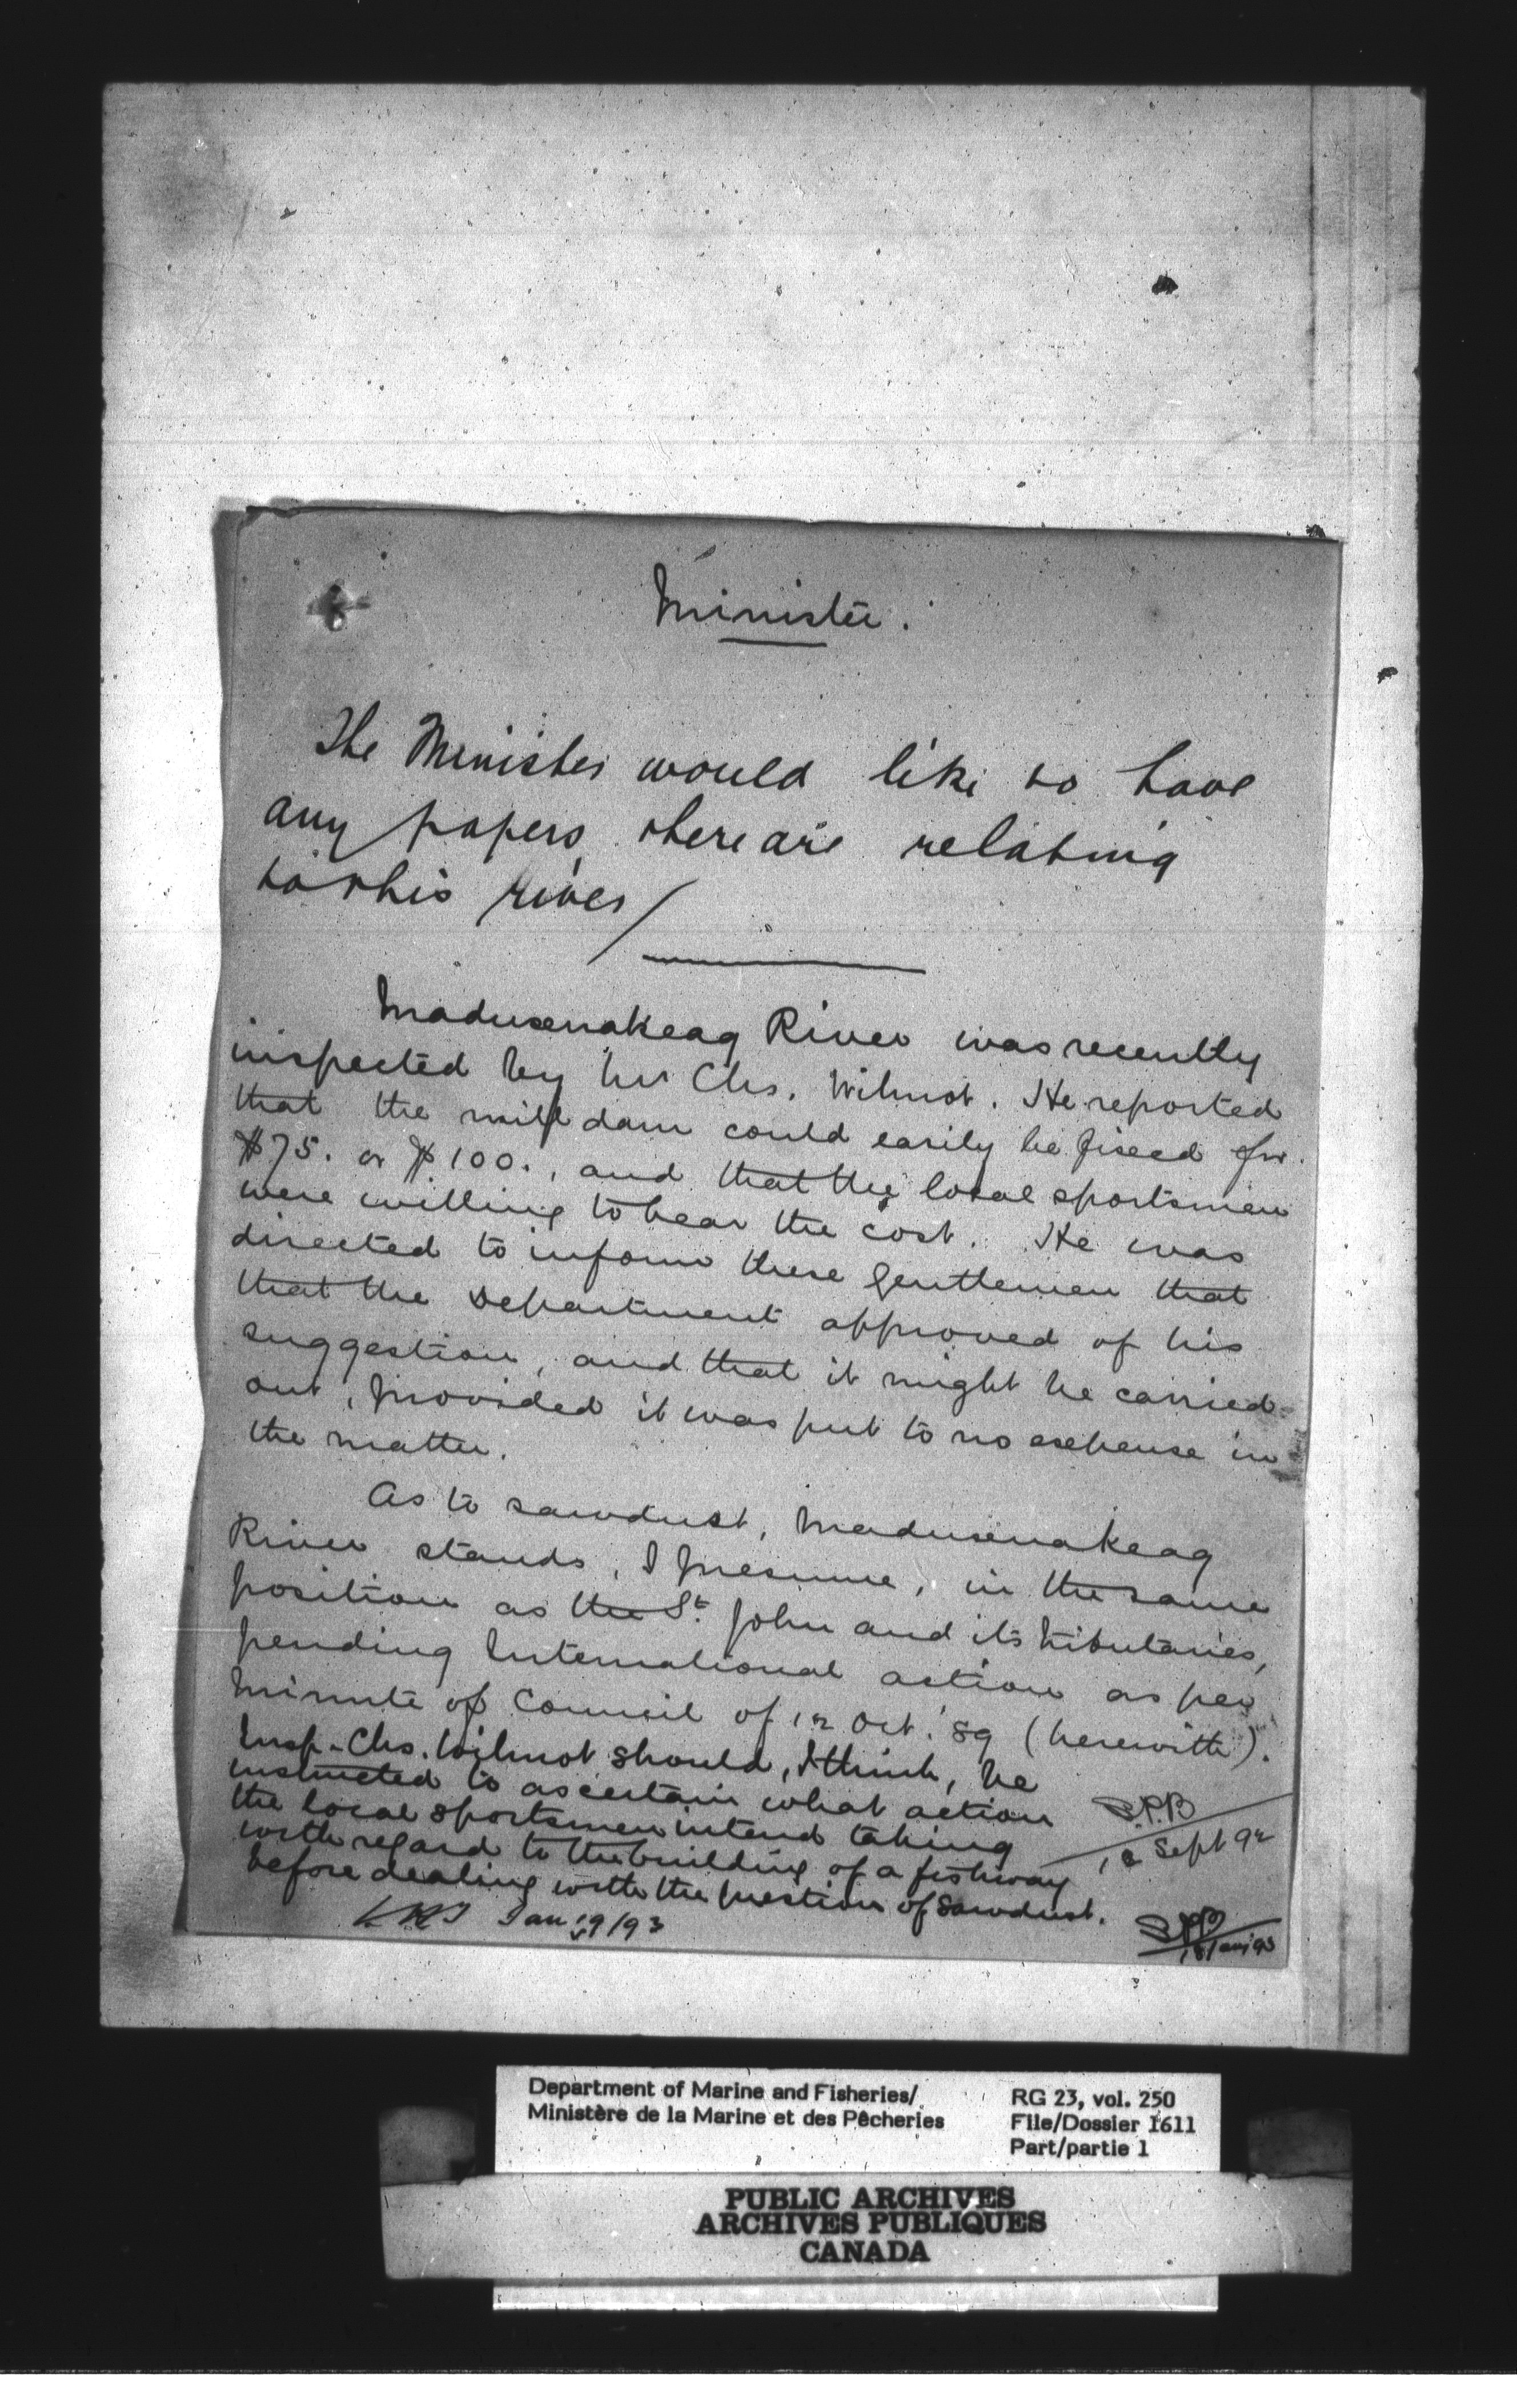 Minister.
The Minister would like to have
any papers there are relating
to this river
Maduxenakeag River was recently
inspected by Mr Chs. Wilmot. He reported
that the mill dam could easily be fixed for
$75. or $100., and that the local sportsmen
were willing to bear the cost. He was
directed to inform these gentlemen that
that the Department approved of his
suggestion, and that it might be carried
out, provided it was put to no expense in
the matter.
As to sawdust, Maduxenakeag
River stands, I presume, in the same
position as the St. John and its tributaries,
pending International action as per
Minute of Council of 12 Oct. '89 (herewith).
S.P.B
Sept 92
Insp. Chs. Wilmot should, I think, be
instructed to ascertain what action
the local sportsmen intend taking
with regard to the building of a fishway
before dealing with the question of sawdust.
Jan 19/93
SPB
18 Jan '93
Department of Marine and Fisheries/
Ministère de la Marine et des Pêcheries
RG 23, vol. 250
File/Dossier 1611
Part/partie 1
PUBLIC ARCHIVES
ARCHIVES PUBLIQUES
CANADA